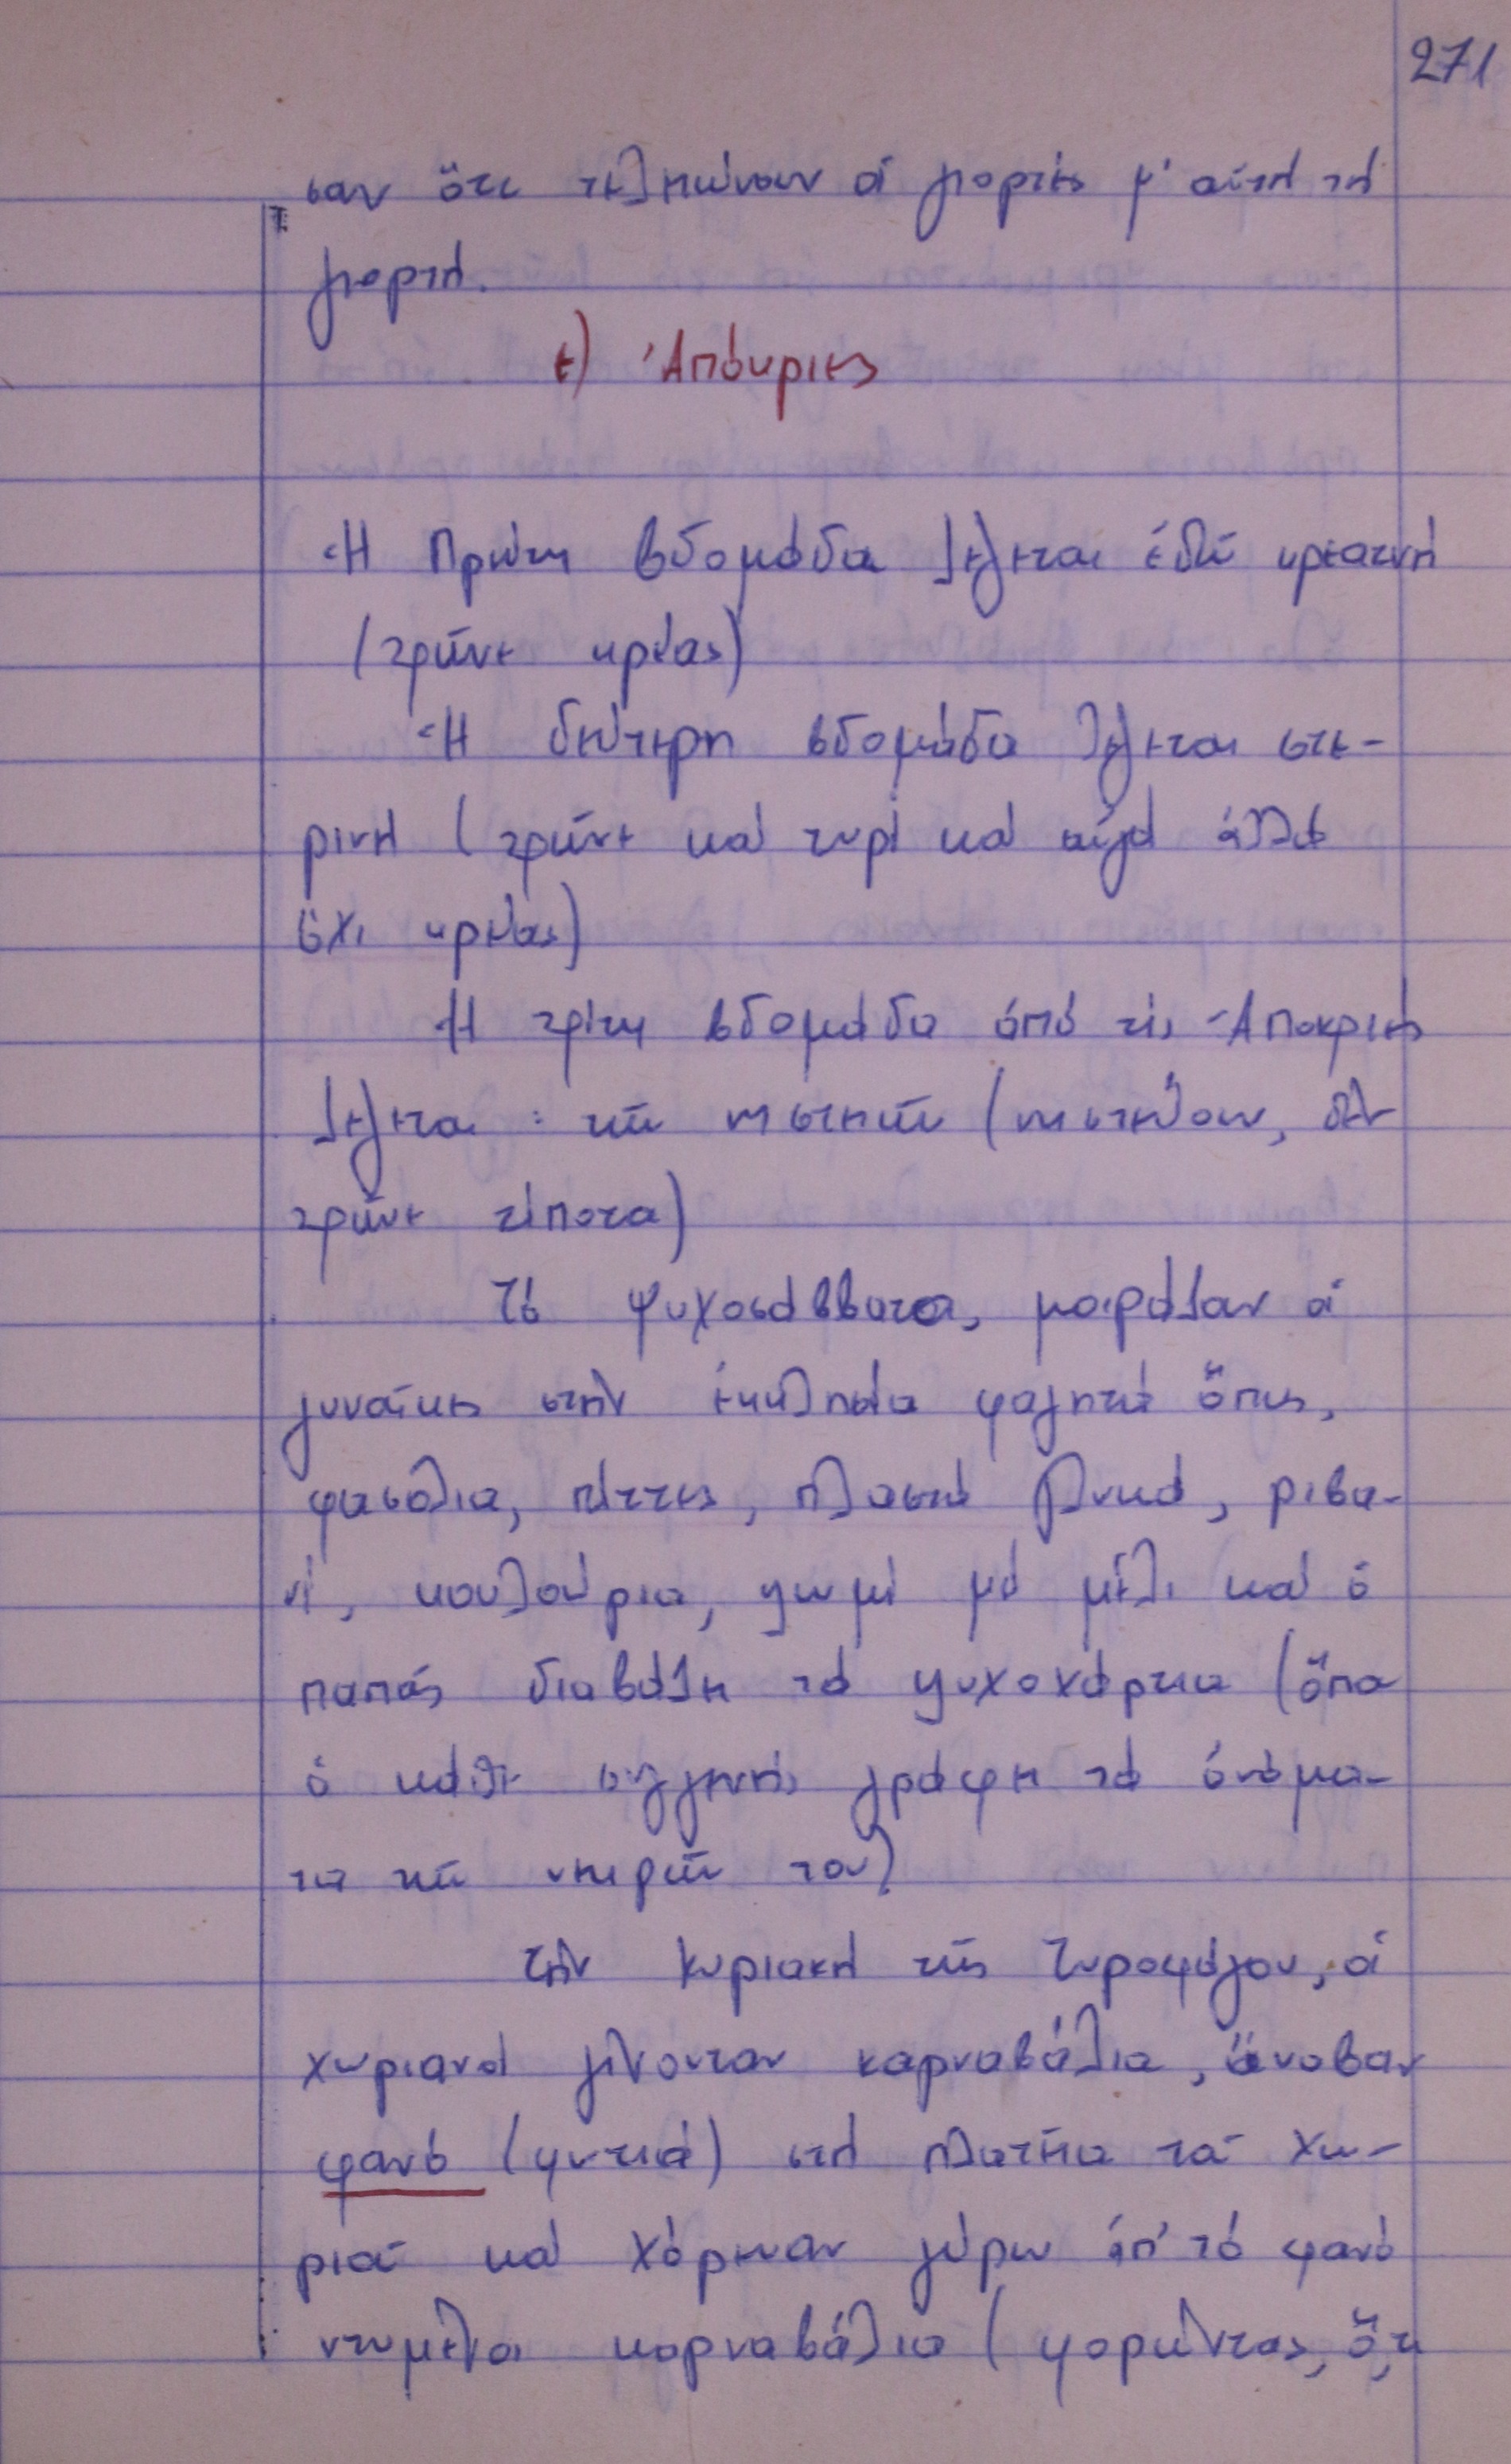 271
σαν ὅτι τελειώνουν οἱ γιορτές μ' αὐτή τή
γιορτή.
ε) Ἀπόκριες
Ἡ Πρώτη βδομάδα λέγεται ἐδῶ κρεατνή
(τρῶνε κρέας)
Ἡ δεύτερη βδομάδα λέγεται στε-
ρινή (τρῶνε καί τυρί καί αὐγά ἀλλά
ὄχι κρέας)
Ἡ τρίτη βδομάδα ἀπό τίς Ἀποκριές
λέγεται: τῶν νηστειῶν (νηστεύουν, δέν
τρῶνε τίποτα)
Τά ψυχοσάββατα, μοιράζαν οἱ
γυναῖκες στήν ἐκκλησία φαγητά ὅπως,
φασόλια, πίττες, πλαστά γλυκά, ριβα-
νί, κουλούρια, ψωμί μέ μέλι καί ὁ
παπάς διαβάζει τά ψυχοχάρτια (ὅπου
ὁ κάθε συγγενής γράφει τά ὀνόμα-
τα τῶν νεκρῶν του)
Τήν Κυριακή τῆς Τυροφάγου, οἱ
χωριανοί γίνονταν καρναβάλια, ἄναβαν
φανό (φωτιά) στή πλατεῖα τοῦ χω-
ριοῦ καί χόρευαν γύρω ἀπ' τό φανό
ντυμένοι καρναβάλια (φορώντας ὅ,τι